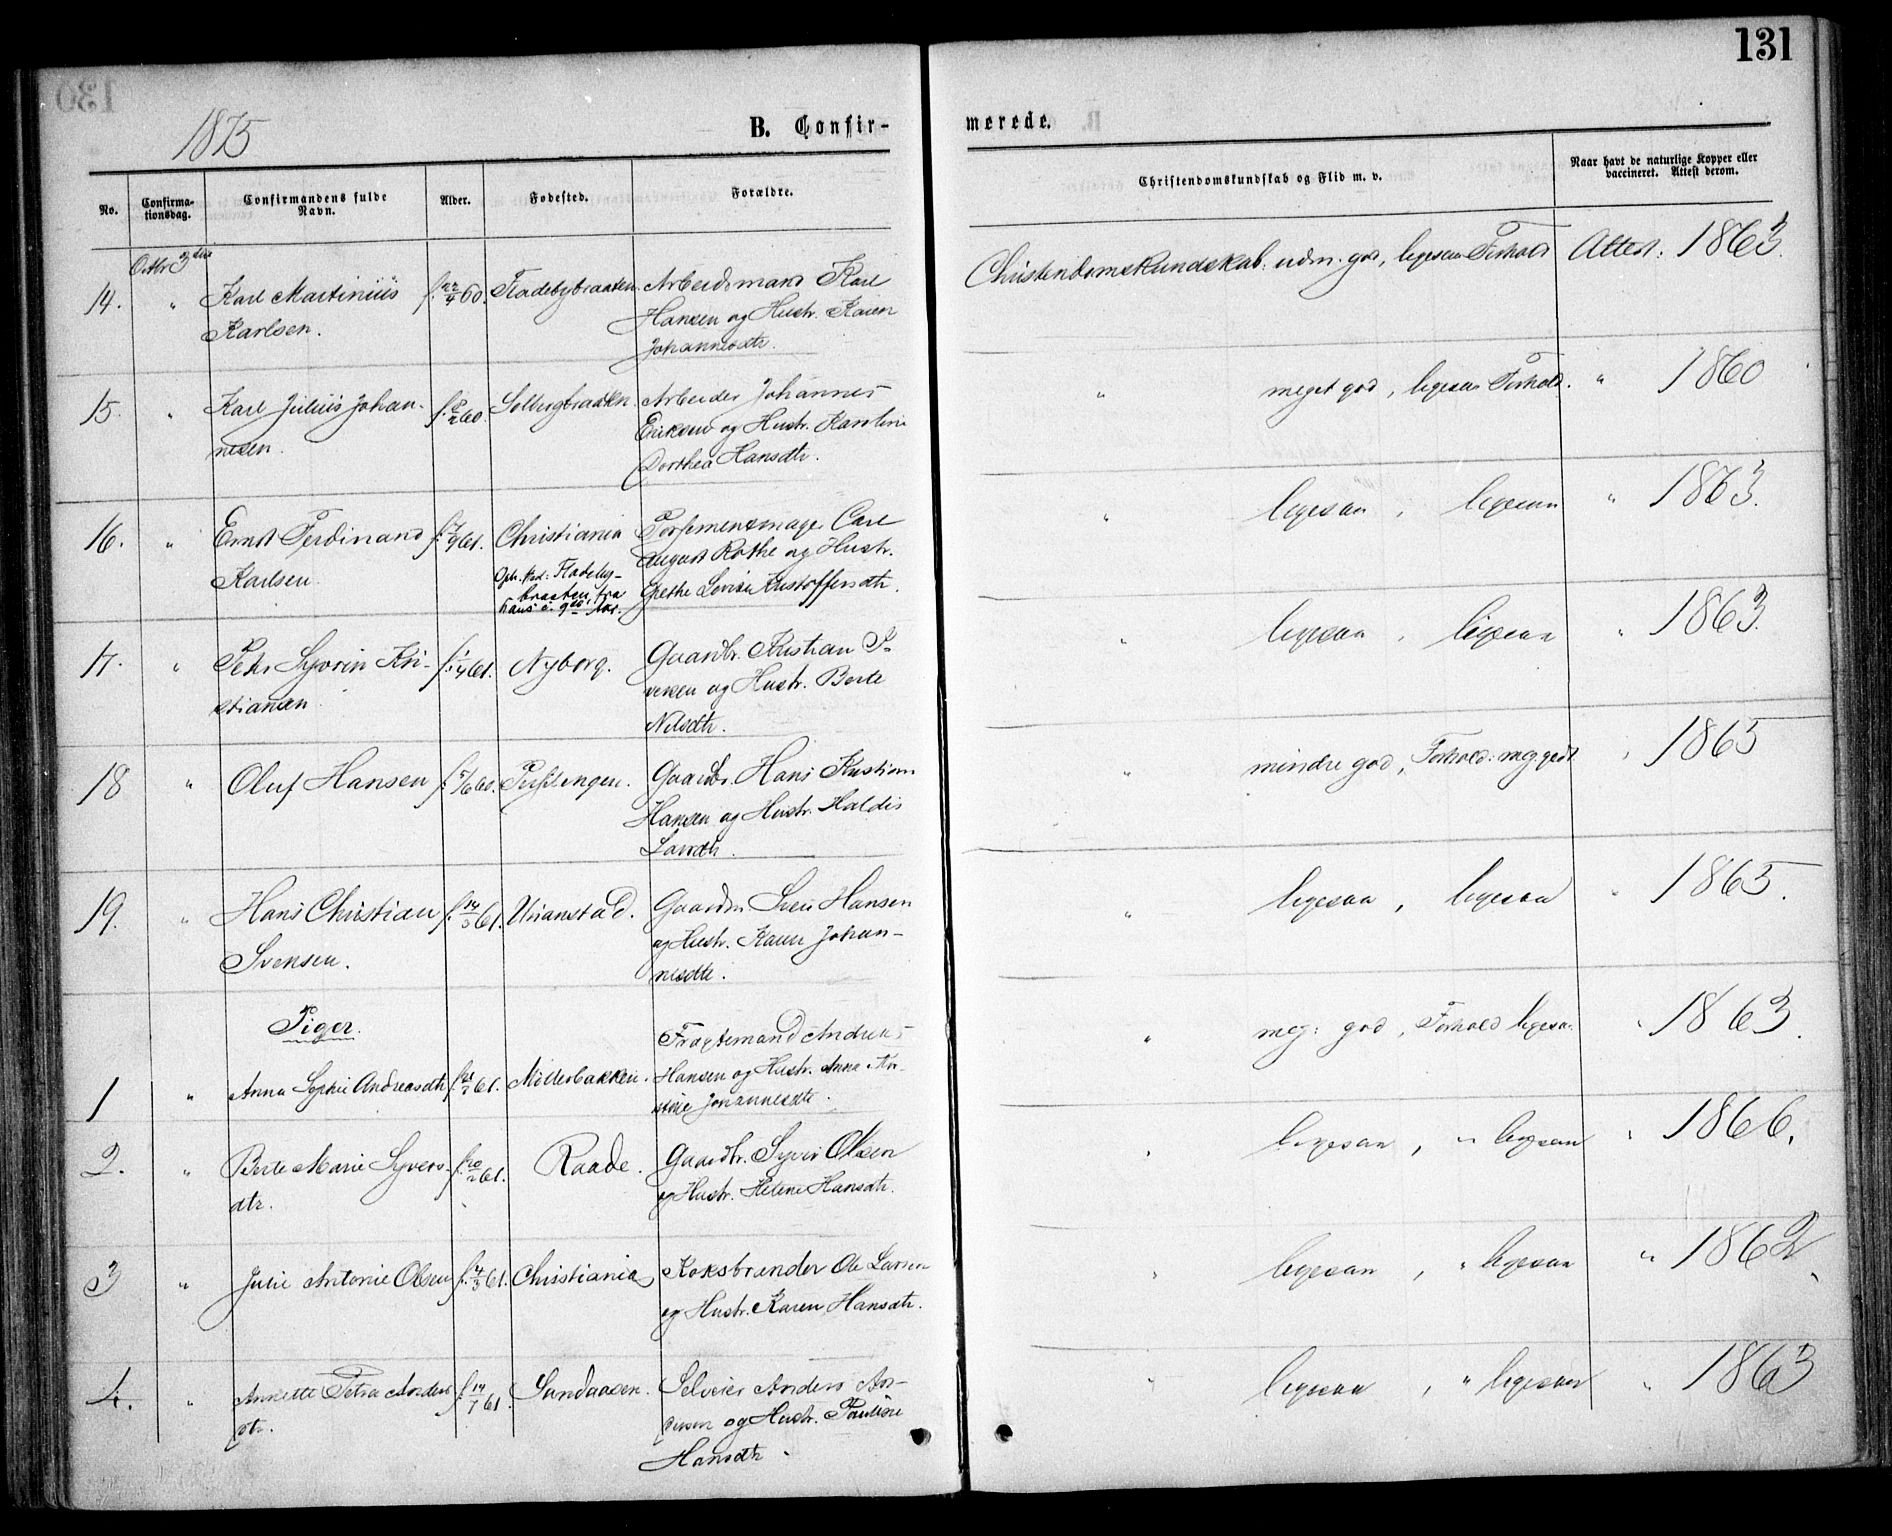 131
1875
B. Confir-
merede.
No.
Confirma-
tionsdag.
Confirmandens fulde
Navn.
Alder.
Fødested.
Forældre.
Christendomskundskab og Flid m. v.
Naar havt de naturlige Kopper eller
vaccineret. Attest derom.
Octbr 3die
14. " Karl Martinius f. 22/4 60. Fladebybraaten. Arbeidsmand Karl Christendomskundskab: udm. god, ligesaa Forhold Attest: 1863.
Karlsen. Hansen og Hustr. Karen
Johannesdtr.
15. " Karl Julius Johan- f. 8/2 60. Solbergbraaten. Arbeider Johannes " meget god, ligesaa Forhold. " 1860
nesen. Eriksen og Hustr. Karoline
Dorthea Hansdtr.
16. " Ernst Ferdinand f. 7/9 61. Christiania Carl " ligesaa, ligesaa " 1863.
Karlsen. Oph.sted: Fladeby- August Rothe og Hustr.
braaten, fra Grethe Lovise Kristoffersdtr.
hans 9de Aar.
17. " Peter Syvrin Kri- f. 1/4 61. Nyborg. Gaardbr. Kristian I- " ligesaa, ligesaa " 1863.
stiansen. versen og Hustr. Berte
Nilsdtr.
18 " Oluf Hansen f. 5/6 60. Gaardbr. Hans Kristian " mindre god, Forhold: meg. godt " 1865
Hansen og Hustr. Haldis
Larsdtr.
19. " Hans Christian f. 14/3 61. Unanstad. Gaardbr Sven Hansen " ligesaa, ligesaa " 1865.
Svensen. og Hustr. Karen Johan-
nesdtr.
Piger.
Fragtemand Andreas
1 " Anna Sophie Andreasdtr 61. Møllerbakken. Hansen og Hustr. Anna Kri- " meg: god, Forhold ligesaa " 1863.
stine Johannesdtr.
2. " Berte Marie Syvers- f. 20/2 61. Raade. Gaardbr. Syver Olsen " ligesaa, " ligesaa " 1866.
dtr. og Hustr. Helene Hansdtr.
3 " Julie Antonie Olsen f. 4/3 61. Christiania Koksbrænder Ole Larsen " ligesaa, " ligesaa " 1862.
og Hustr. Karen Hansdtr.
4. " Annette Petra Anders- f. 14/7 61. Sandaasen. Selveier Anders An- " ligesaa, " ligesaa " 1863
dtr. dersen og Hustr. Pauline
Hansdtr.